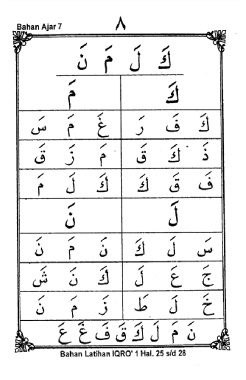 Bahan Ajar 7
٨
كَ لَ مَ نَ
كَ مَ
كَ فَ رَ غَ مَ سَ
ذَ كَ قَ مَ زَ قَ
فَ قَ كَ كَ لَ مَ
لَ نَ
سَ لَ كَ نَ مَ نَ
جَ عَ لَ كَ نَ شَ
خَ لَ طَ زَ مَ نَ
نَ مَ لَ كَ قَ فَ غَ عَ
Bahan Latihan IQRO' 1 Hal. 25 s/d 28